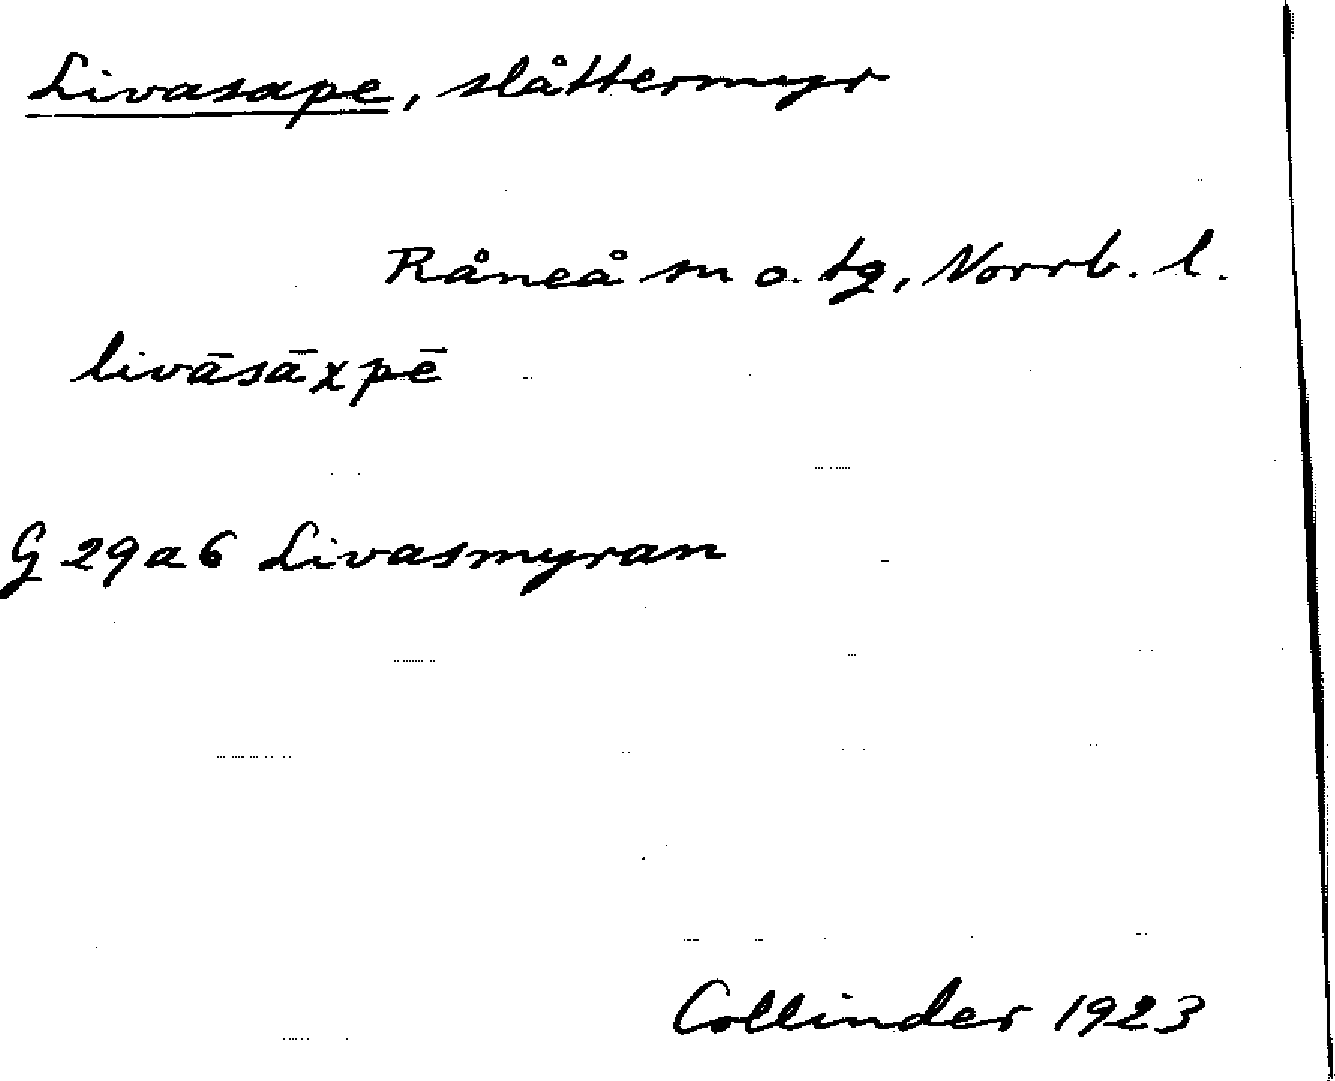 Livasape, slåttermyr
Råneå sn o. tg, Norrb. l.
livāsāχpē
G 29a6 Livasmyran
Collinder 1923